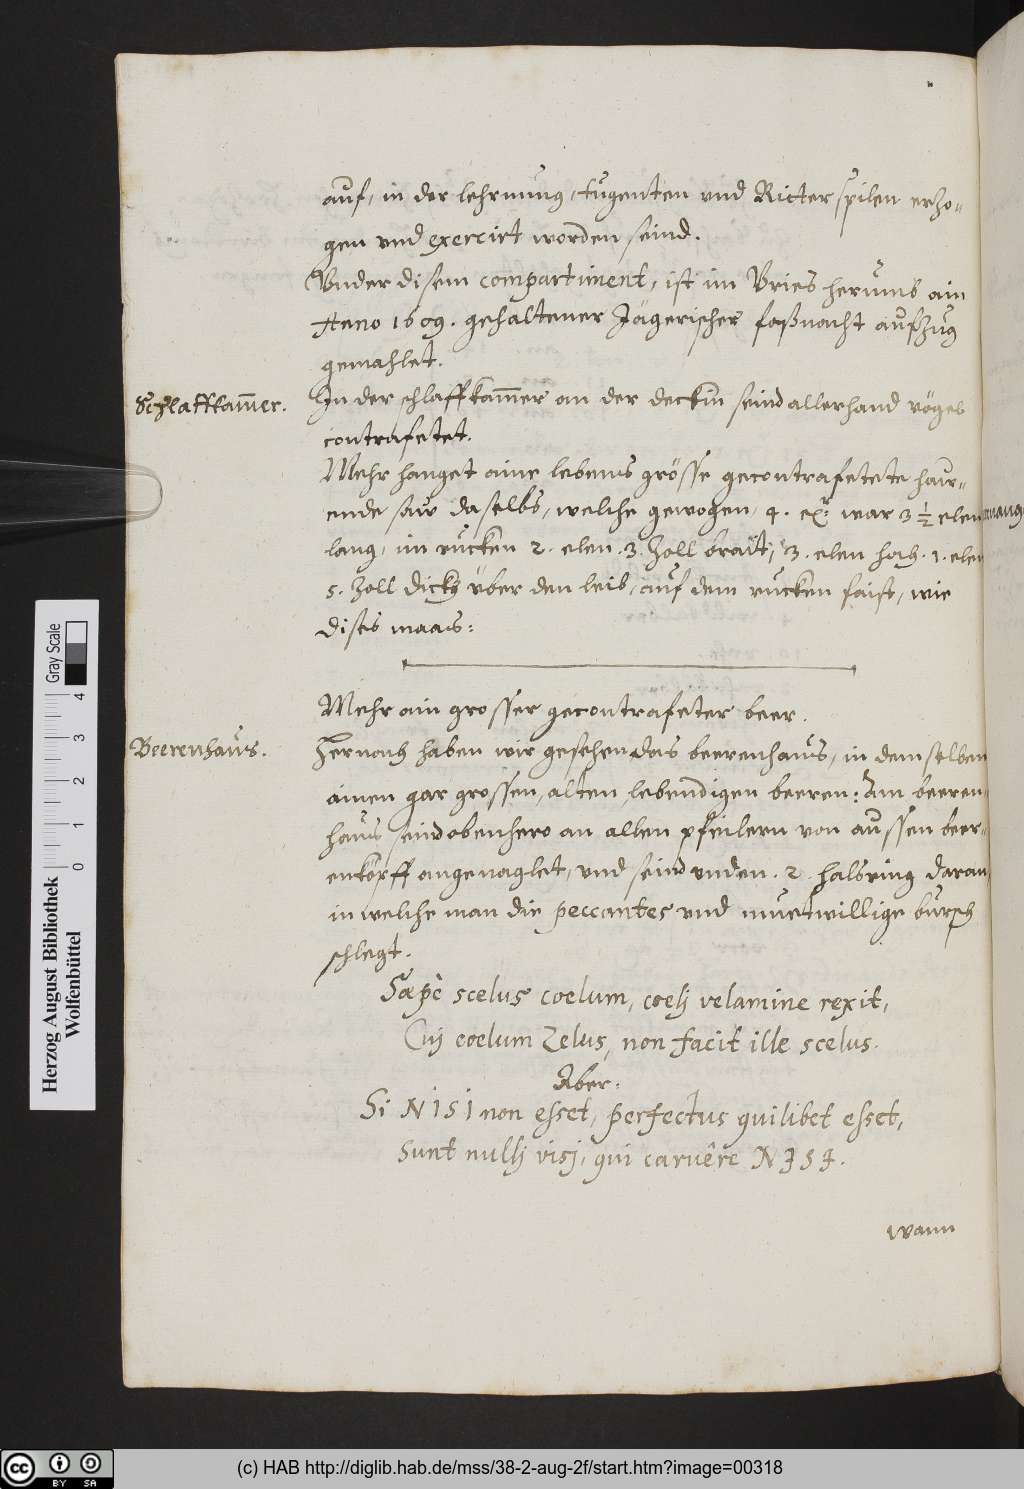 auf, in der lehrnung, tugenten und Ritterspilen erzo-
gen und exercirt worden seind.
Under disem compartiment, ist im Vries herumb ain
Anno 1609. gehaltener Jägerischer faßnacht aufzug
gemahlet.
Schlaffkam̄er.
In der schlaffkam̄er an der deckin seind allerhand vögel
contrafetet.
Mehr hanget aine lebens grösse gecontrafetete haw-
ende saw daselbs, welche gewogen, 4. war 3 1/2 elen
lang, im rucken 2. elen. 3. Zoll brait, 3. elen hoch. 1. elen
5. Zoll dickh über den leib, auf dem rucken faist, wie
dises maas:
Mehr ain grosser gecontrafeter beer.
Beerenhaus.
Hernach haben wir gesehen das beerenhaus, in demselben
ainen gar grossen, alten, lebendigen beeren: Am beeren-
haus seind obenhero an allen pfeilern von aussen beer-
enköpff angenaglet, und seind unden. 2. halsring daran,
in welche man die peccantes und muetwillige bursch
schlegt.
Sæpè scelus coelum, coelj velamine texit,
Cuj coelum Zelus, non facit ille scelus.
Aber:
Si NISI non esset, perfectus quilibet esset,
Sunt nullj visj, qui caruêre NISI.
wann
Herzog August Bibliothek
Wolfenbüttel
Gray Scale
0 1 2 3 4
(c) HAB http://diglib.hab.de/mss/38-2-aug-2f/start.htm?image=00318
CC BY SA